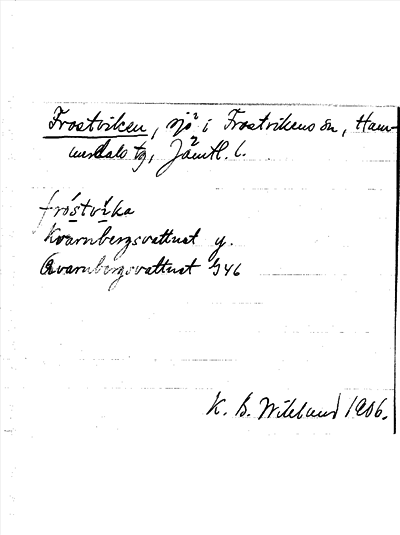 Frostviken, sjö i Frostvikens sn, Ham-
merdals tg, Jämtl. l.
fróstvika
Kvarnbergsvattnet y.
Qvarnbergsvattnet G46
K. B. Wiklund 1906.